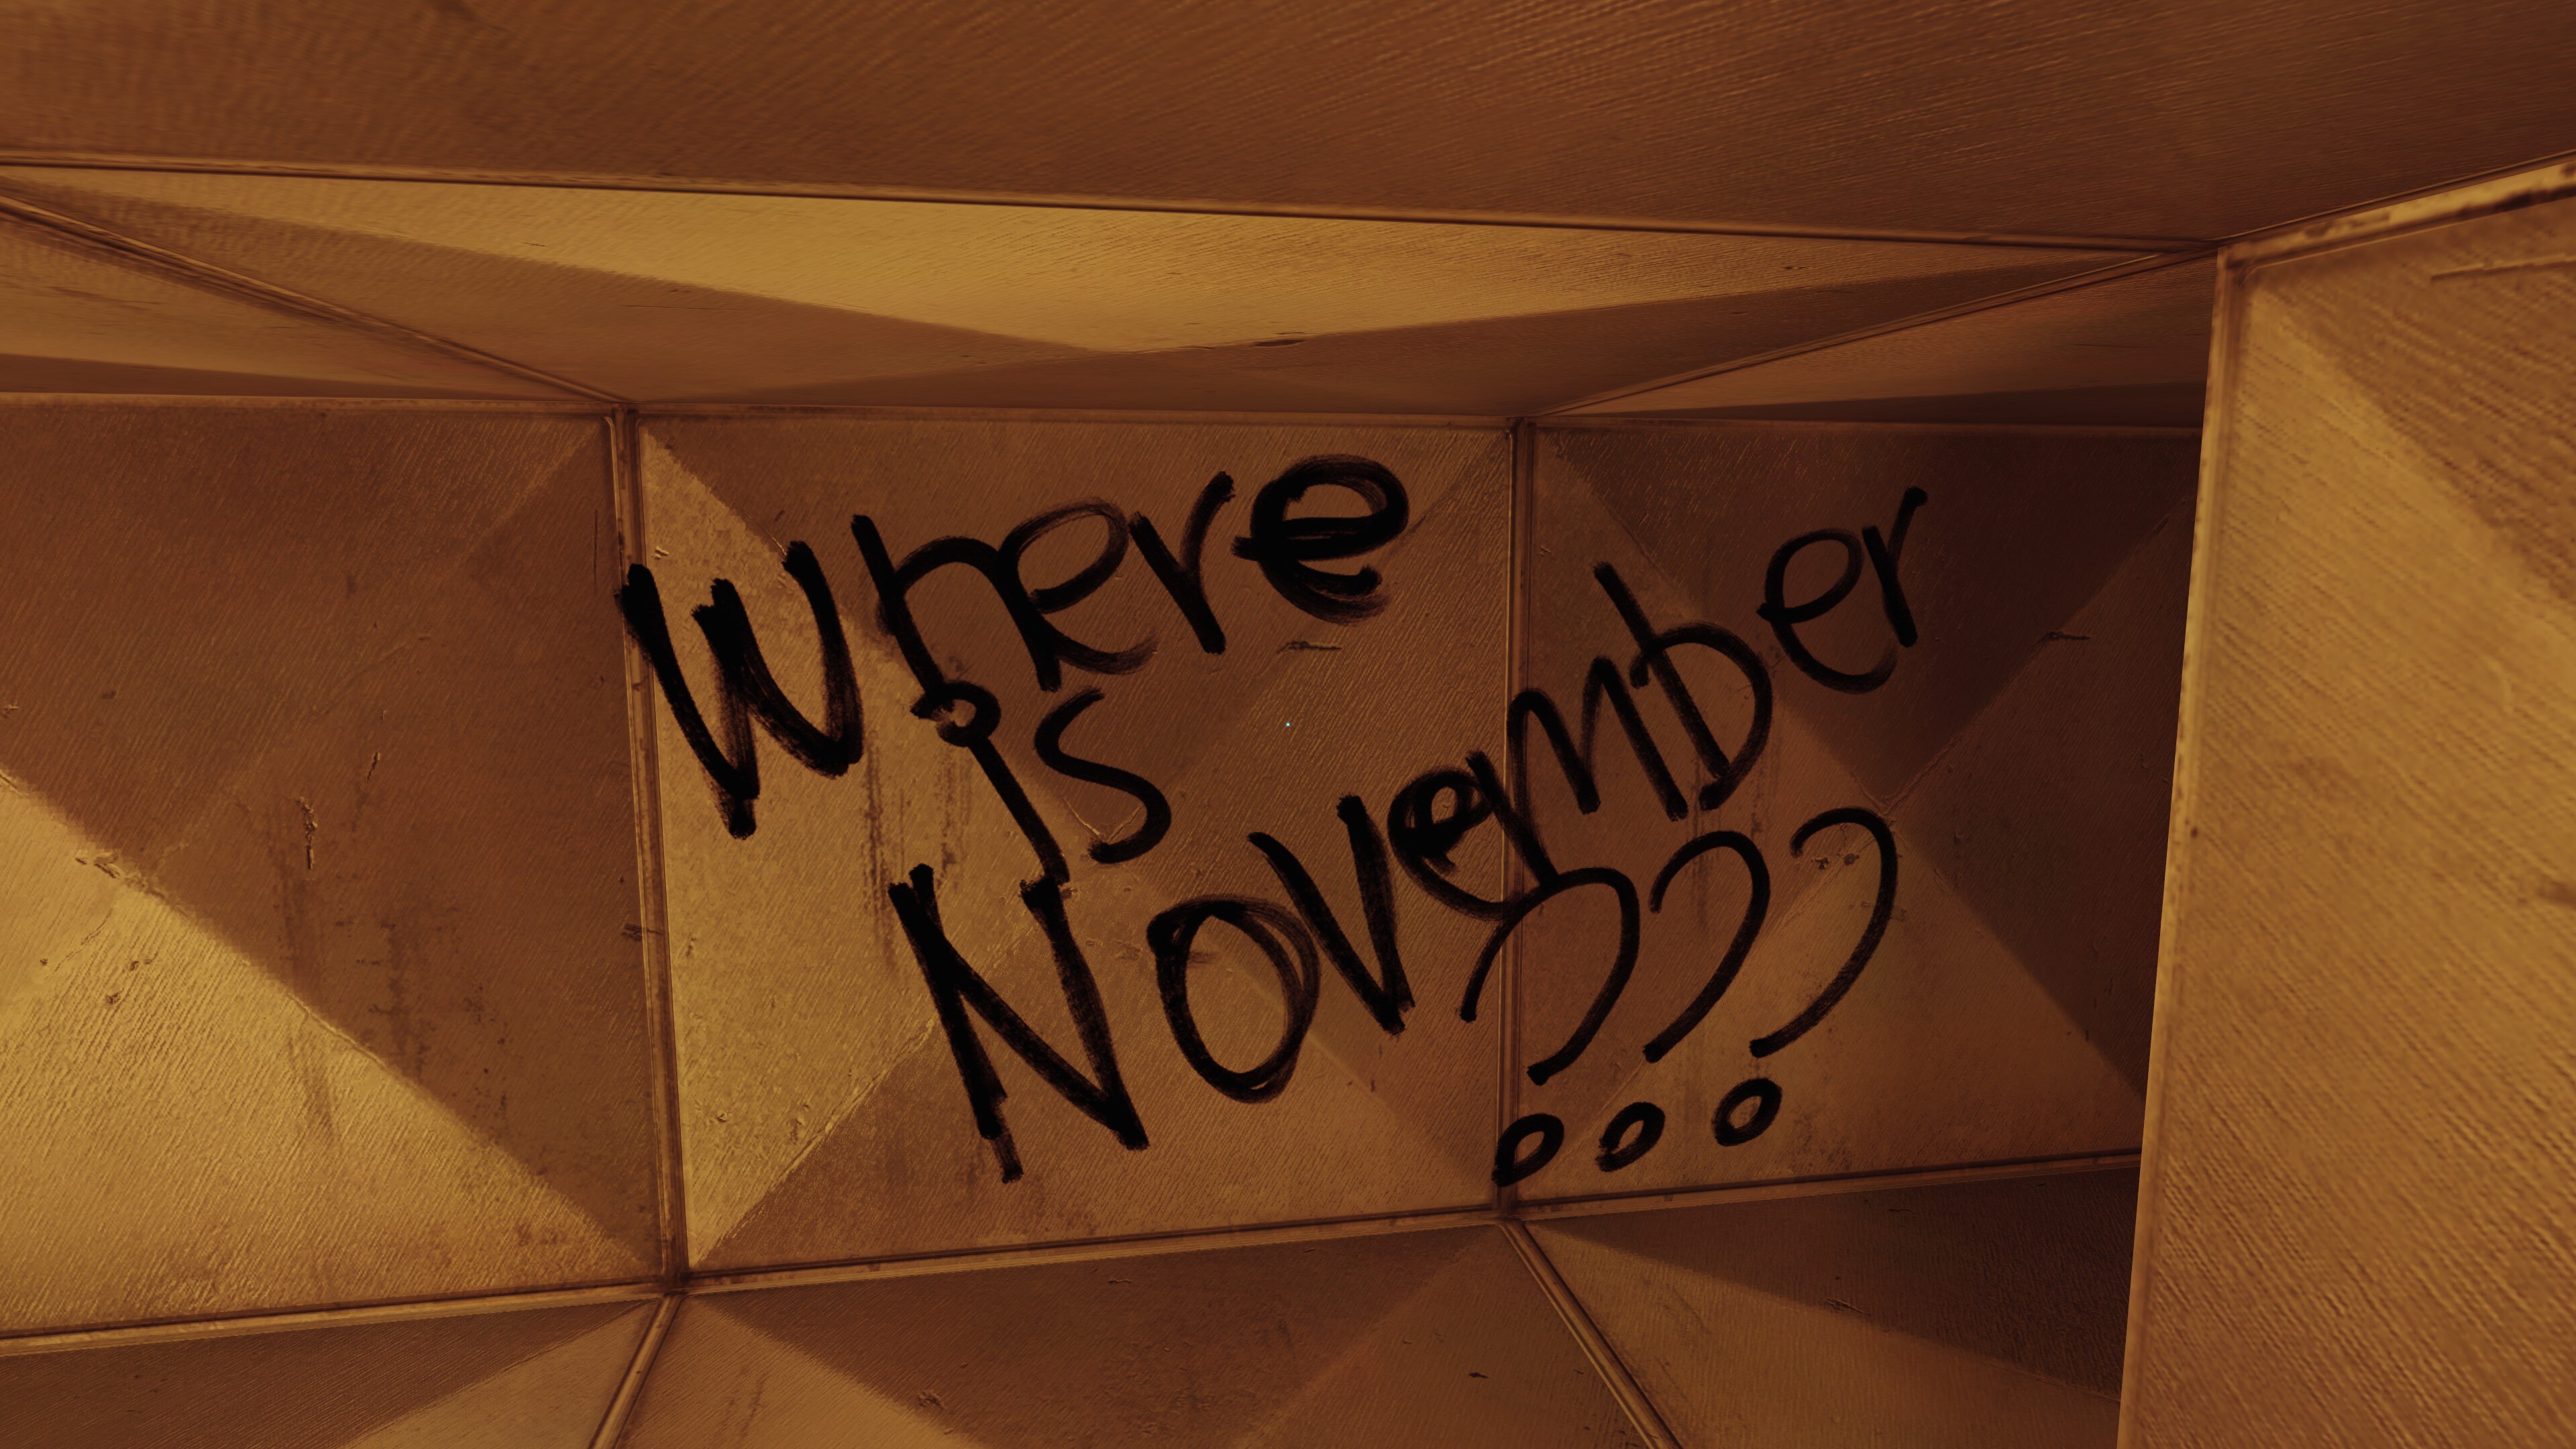 Where
is
November
???